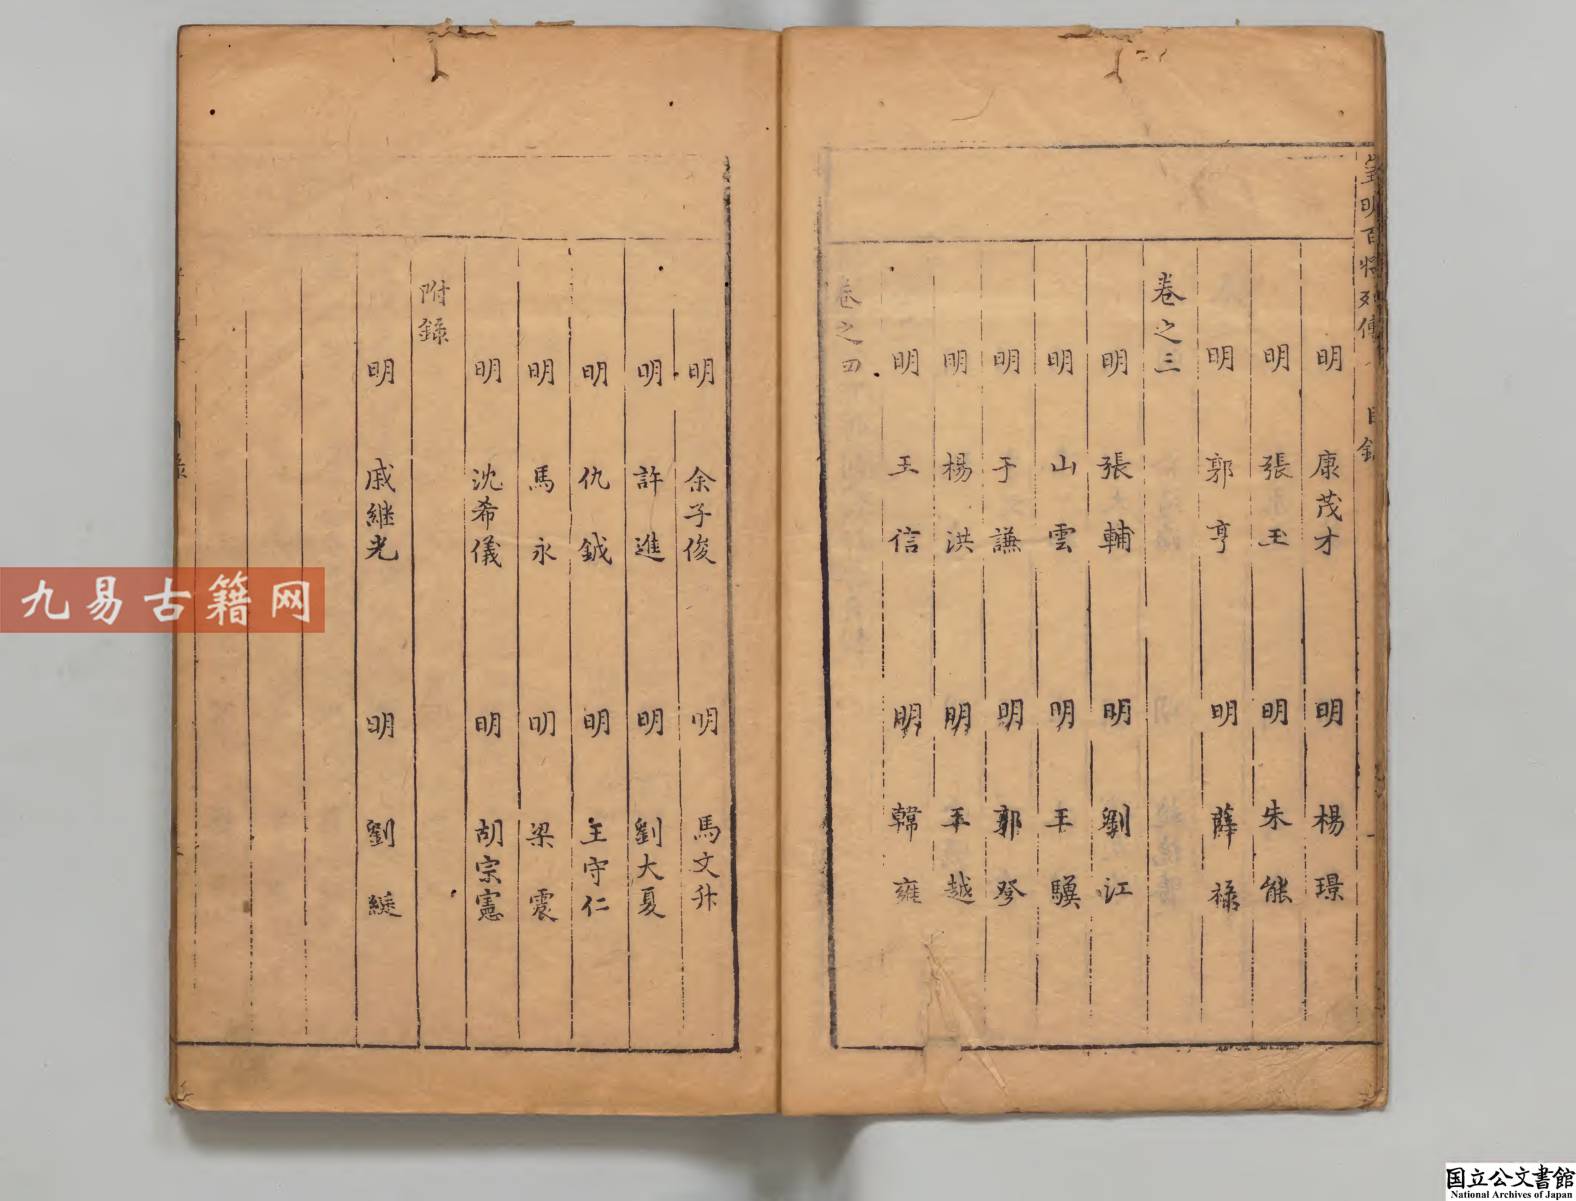 皇明百將列傳 目錄
明 康茂才 明 楊璟
明 張玉 明 朱能
明 郭亨 明 薛祿
卷之三
明 張輔 明 劉江
明 山雲 明 王驥
明 于謙 明 郭登
明 楊洪 明 王越
明 王信 明 韓雍
卷之四
明 余子俊 明 馬文升
明 許進 明 劉大夏
明 仇鉞 明 王守仁
明 馬永 明 梁震
明 沈希儀 明 胡宗憲
附錄
明 戚繼光 明 劉綎
九易古籍网
国立公文書館
National Archives of Japan